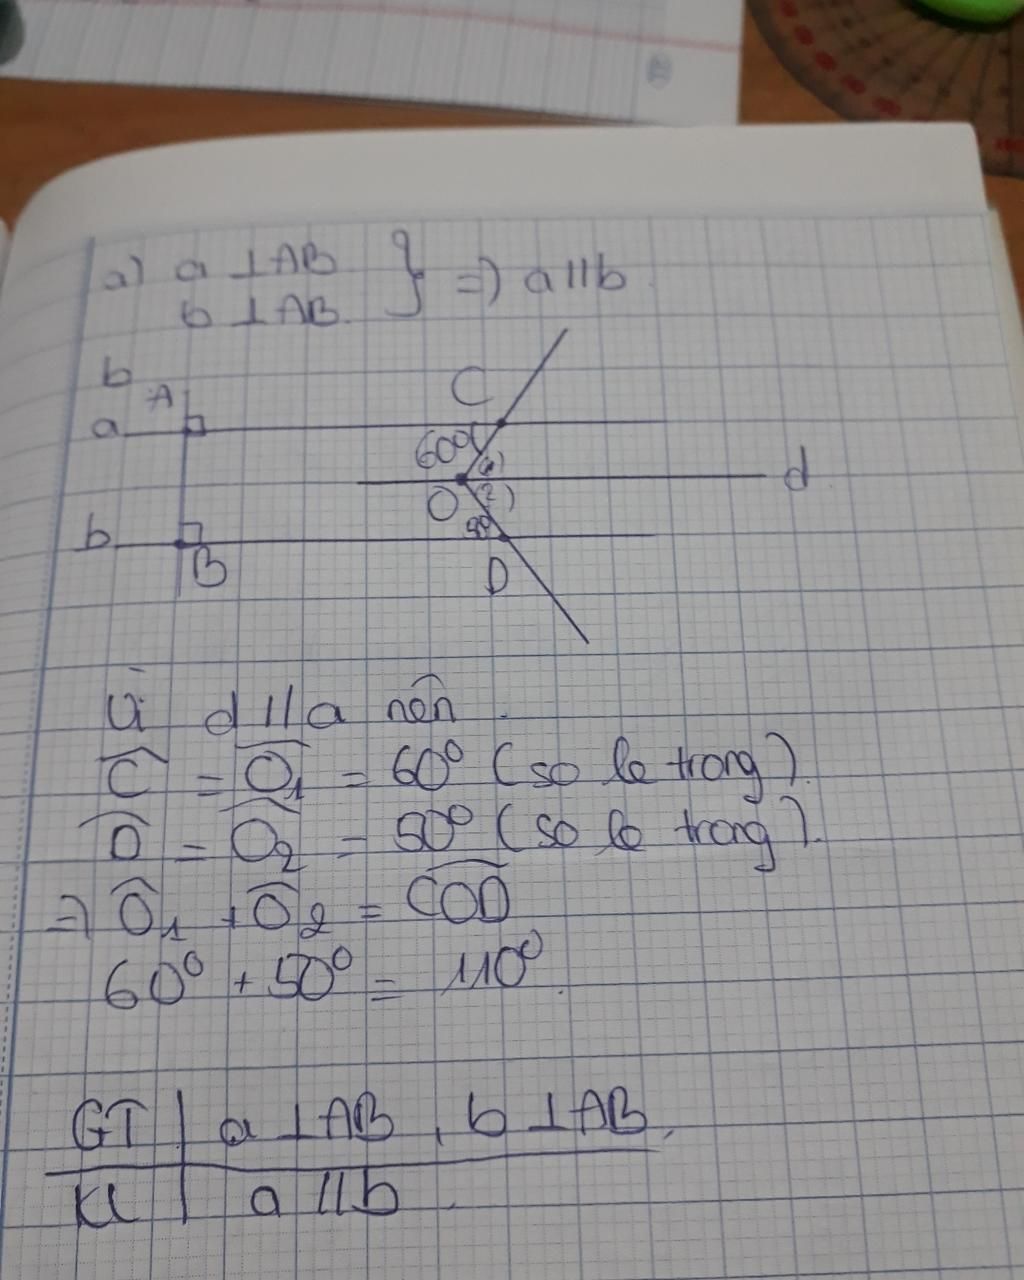 a) a ⊥ AB
b ⊥ AB.
} => a // b
b
A
a
C
60°
(1)
d
O
(2)
b
B
D
Vì d // a nên.
C = O1 = 60° (so le trong).
D = O2 = 50° (so le trong).
=> O1 + O2 = COD
60° + 50° = 110°.
GT | a ⊥ AB, b ⊥ AB.
KL | a // b.